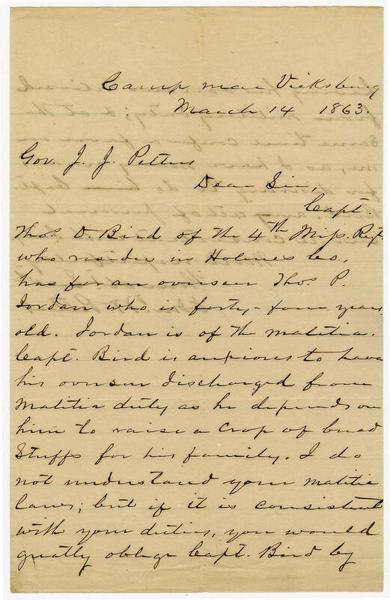 Camp near Vicksburg
March 14 1863.
Gov. J. J. Pettus
Dear Sir,
Capt.
Thos. D. Bird of the 4th Miss. Regt
who resides in Holmes Co.,
has for an overseer Thos. P.
Jordan who is forty-four years
old. Jordan is of the malitia.
Capt. Bird is anxious to have
his overseer discharged from
malitia duty as he depends on
him to raise a crop of bread
stuffs for his family. I do
not understand your malitia
laws; but if it is consistent
with your duties, you would
greatly oblige Capt. Bird by